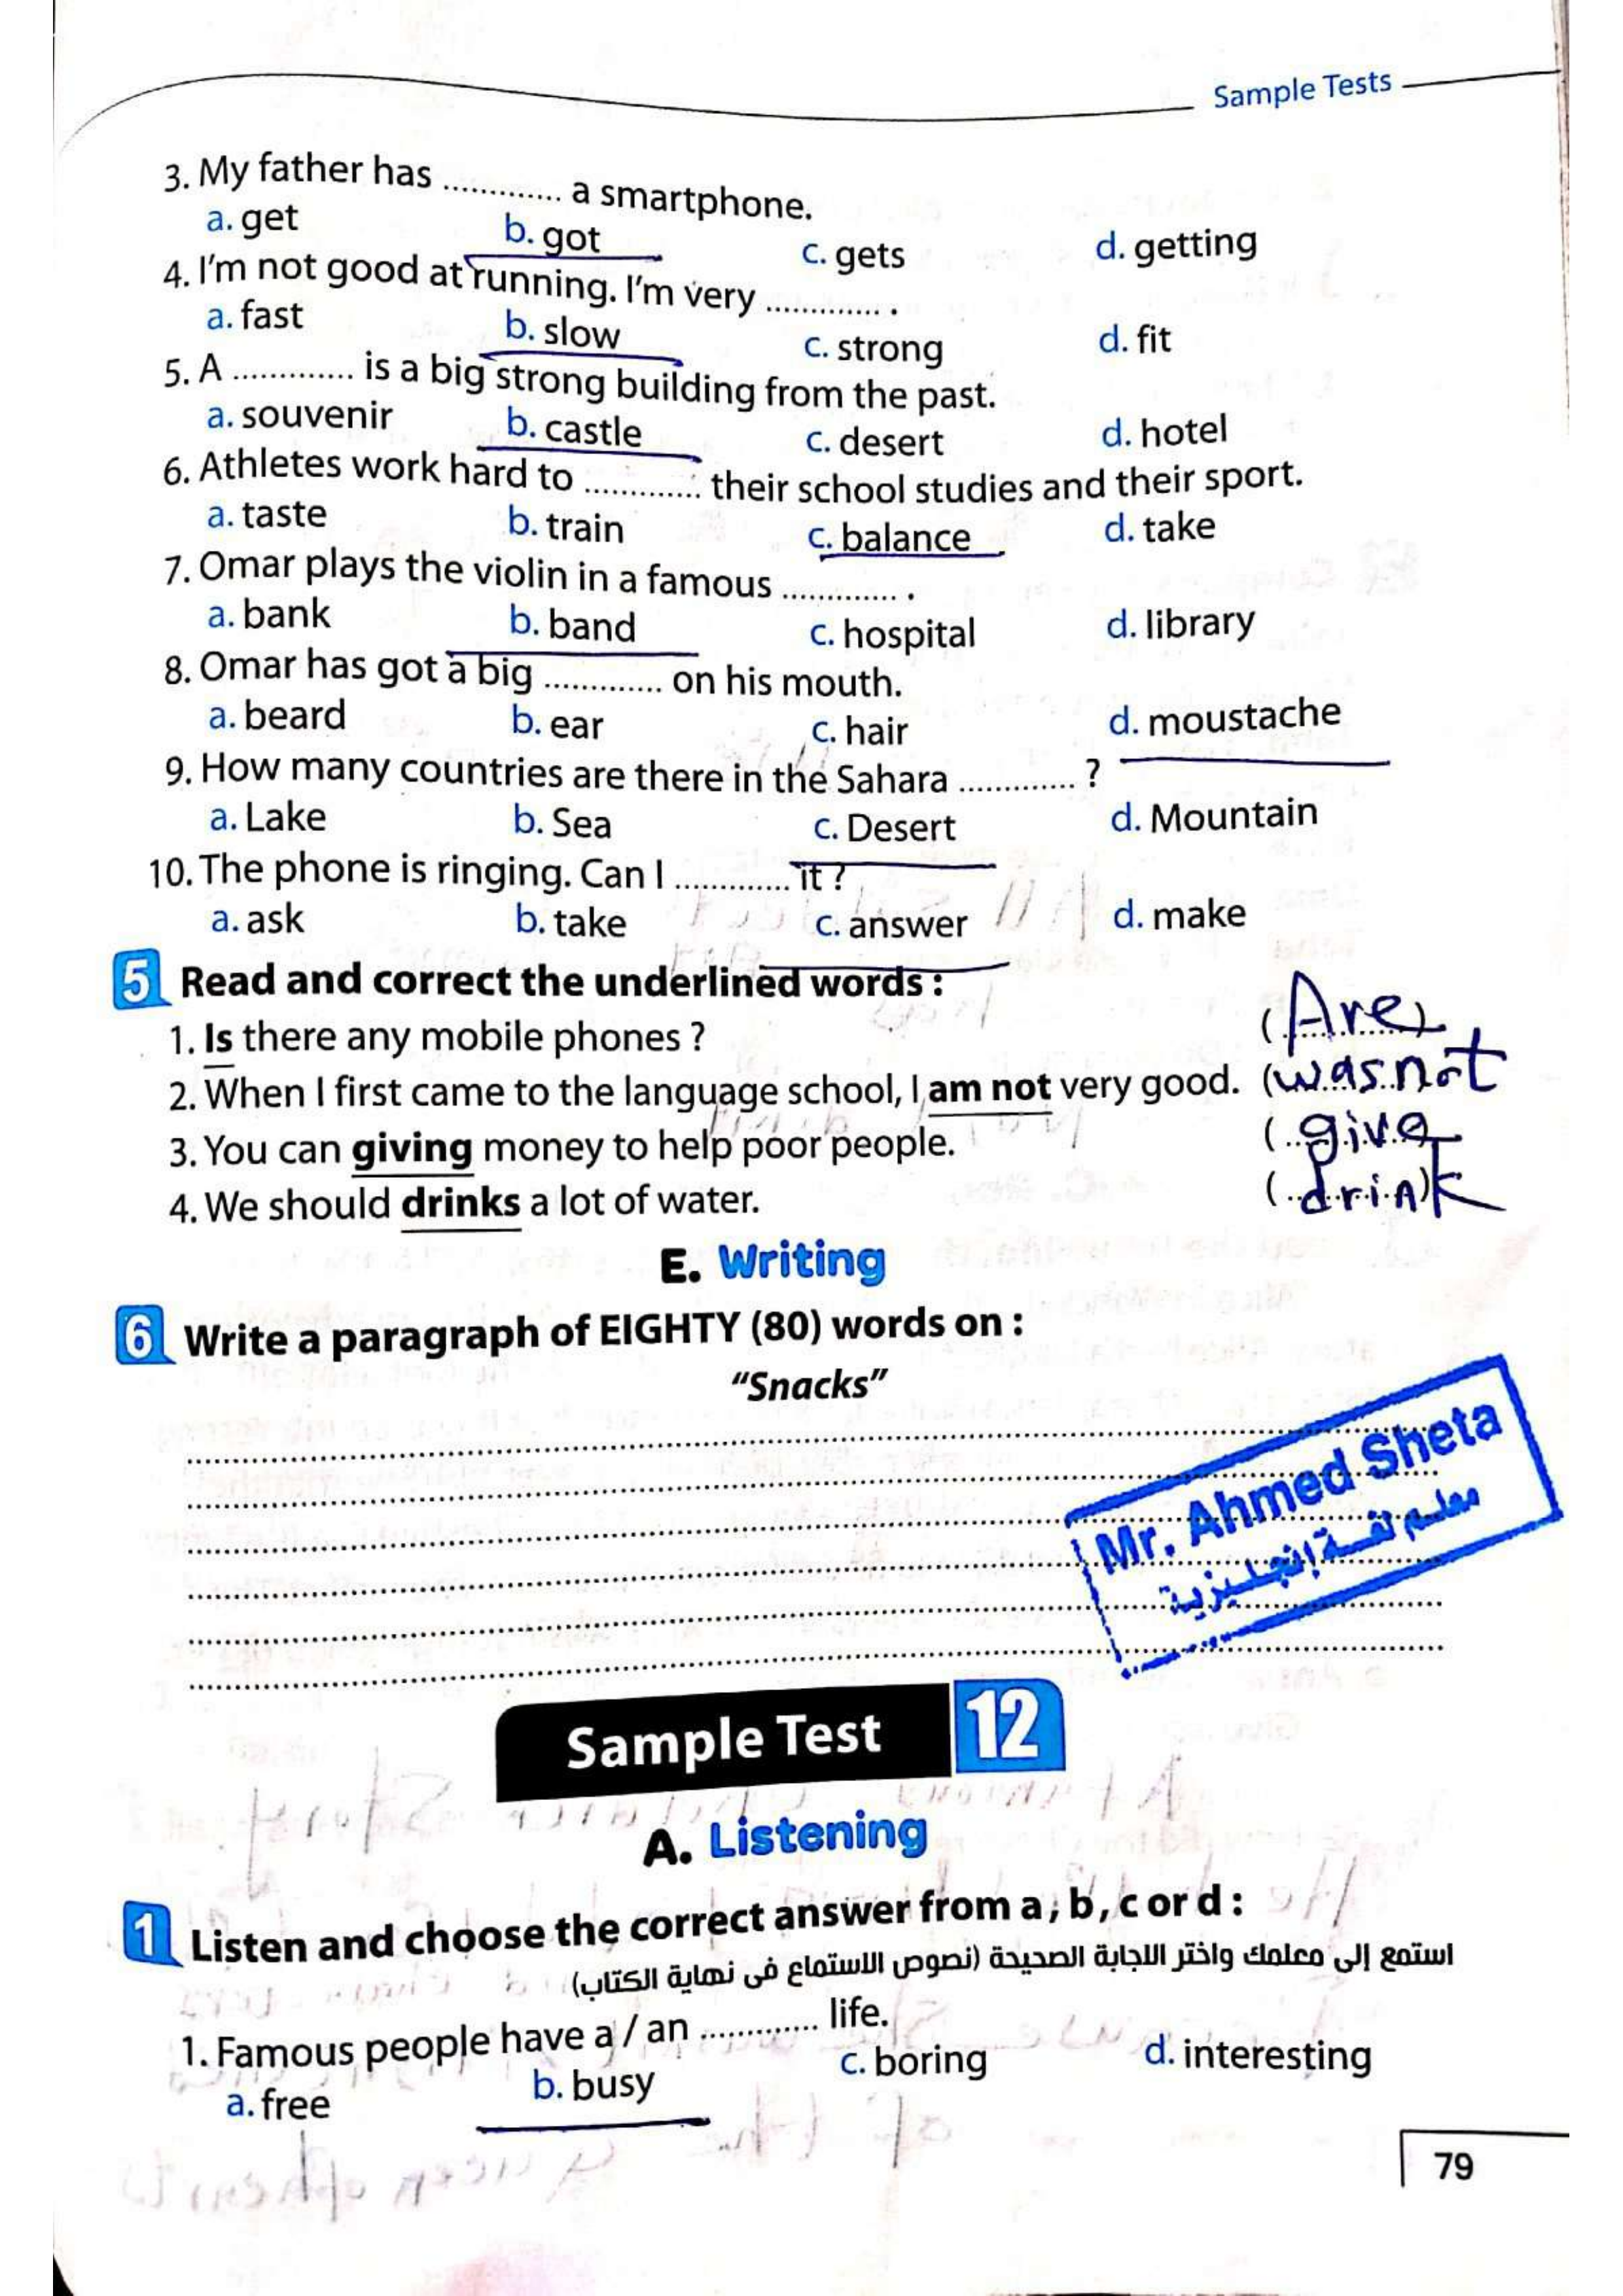 Sample Tests
3. My father has ............. a smartphone.
a. get b. got c. gets d. getting
4. I'm not good at running. I'm very ............. .
a. fast b. slow c. strong d. fit
5. A ............. is a big strong building from the past.
a. souvenir b. castle c. desert d. hotel
6. Athletes work hard to ............. their school studies and their sport.
a. taste b. train c. balance d. take
7. Omar plays the violin in a famous ............. .
a. bank b. band c. hospital d. library
8. Omar has got a big ............. on his mouth.
a. beard b. ear c. hair d. moustache
9. How many countries are there in the Sahara ............. ?
a. Lake b. Sea c. Desert d. Mountain
10. The phone is ringing. Can I ............. it ?
a. ask b. take c. answer d. make
5 Read and correct the underlined words :
1. Is there any mobile phones ? (Are)
2. When I first came to the language school, I am not very good. (was not
3. You can giving money to help poor people. (give
4. We should drinks a lot of water. (drink)
E. Writing
6 Write a paragraph of EIGHTY (80) words on :
"Snacks"
Mr. Ahmed Sheta
معلم لغة إنجليزية
Sample Test 12
A. Listening
1 Listen and choose the correct answer from a, b, c or d :
استمع إلى معلمك واختر الاجابة الصحيحة (نصوص الاستماع فى نهاية الكتاب)
1. Famous people have a / an ............. life.
a. free b. busy c. boring d. interesting
79